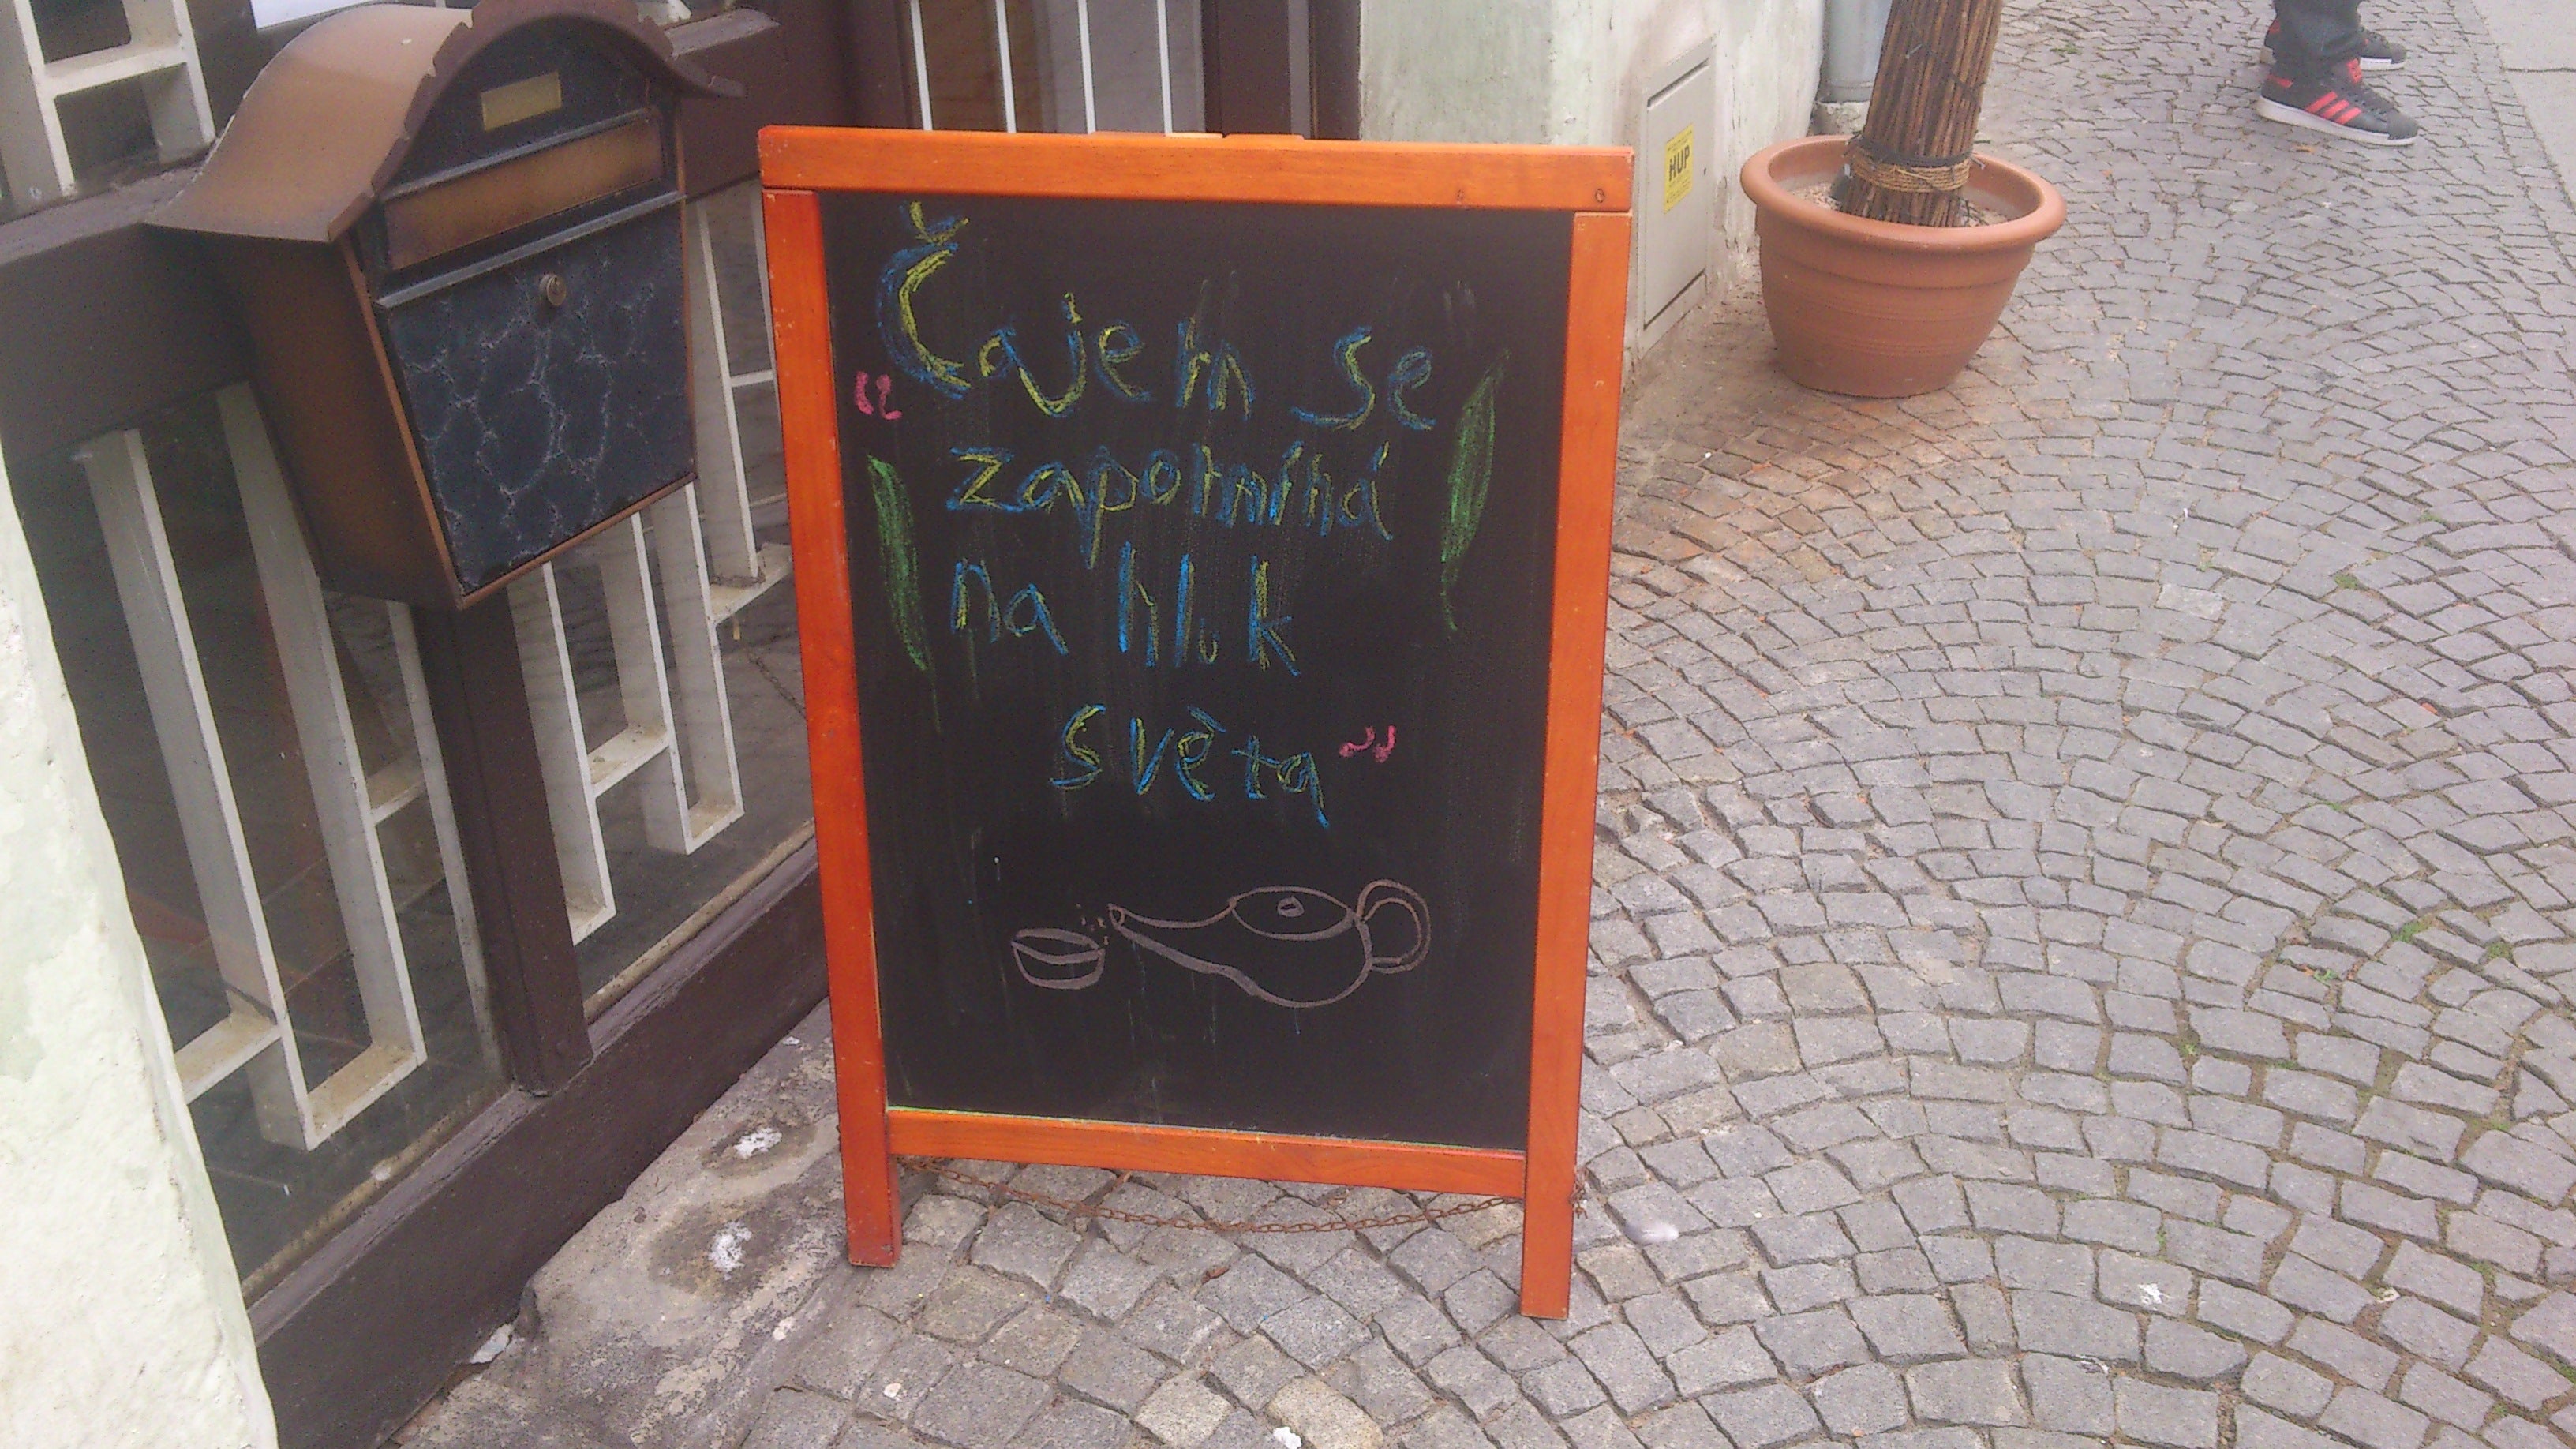 „Čajem se
zapomíná
na hluk
světa”
HUP